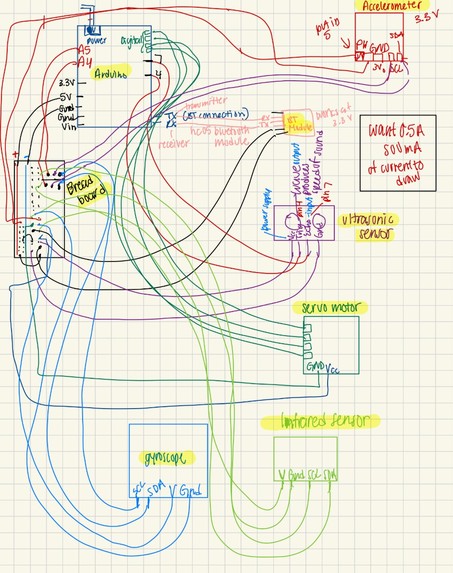 Accelerometer
3.3V
power
digital
A5
A4
Arduino
7
4
3.3V
5V
Gnd
Gnd
Vin
TX
RX
(BT connection)
transmitter
TX
RX
HC05 bluetooth module
receiver
BT
Module
works at
3.3V
GND
SCL
want 0.5A
500mA
of current to
draw
Bread
board
power supply
speed of sound
pin 7
ultrasonic
sensor
servo motor
GND
Vcc
Infrared sensor
V Gnd SCL SDA
gyroscope
SCL SDA V Gnd